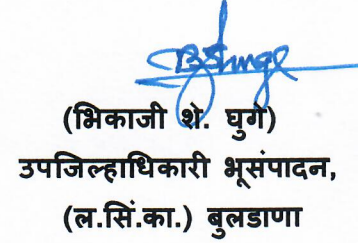 (भिकाजी शे. घुगे)
उपजिल्हाधिकारी भूसंपादन,
(ल.सिं.का.) बुलडाणा